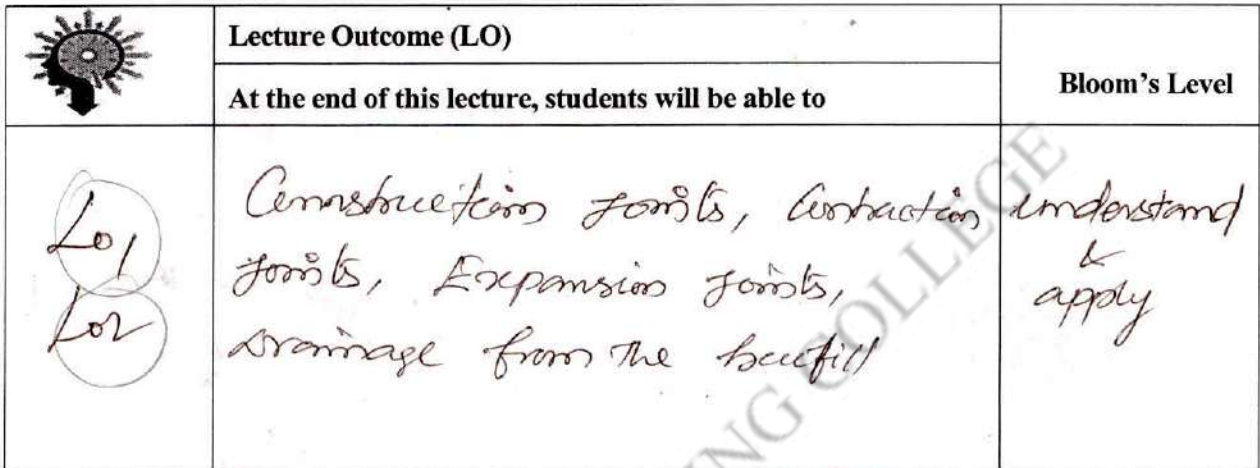 Lecture Outcome (LO)
At the end of this lecture, students will be able to
Bloom's Level
LO1
LO2
Construction Joints, Contraction
Joints, Expansion Joints,
Drainage from the backfill
understand
&
apply
ING COLLEGE